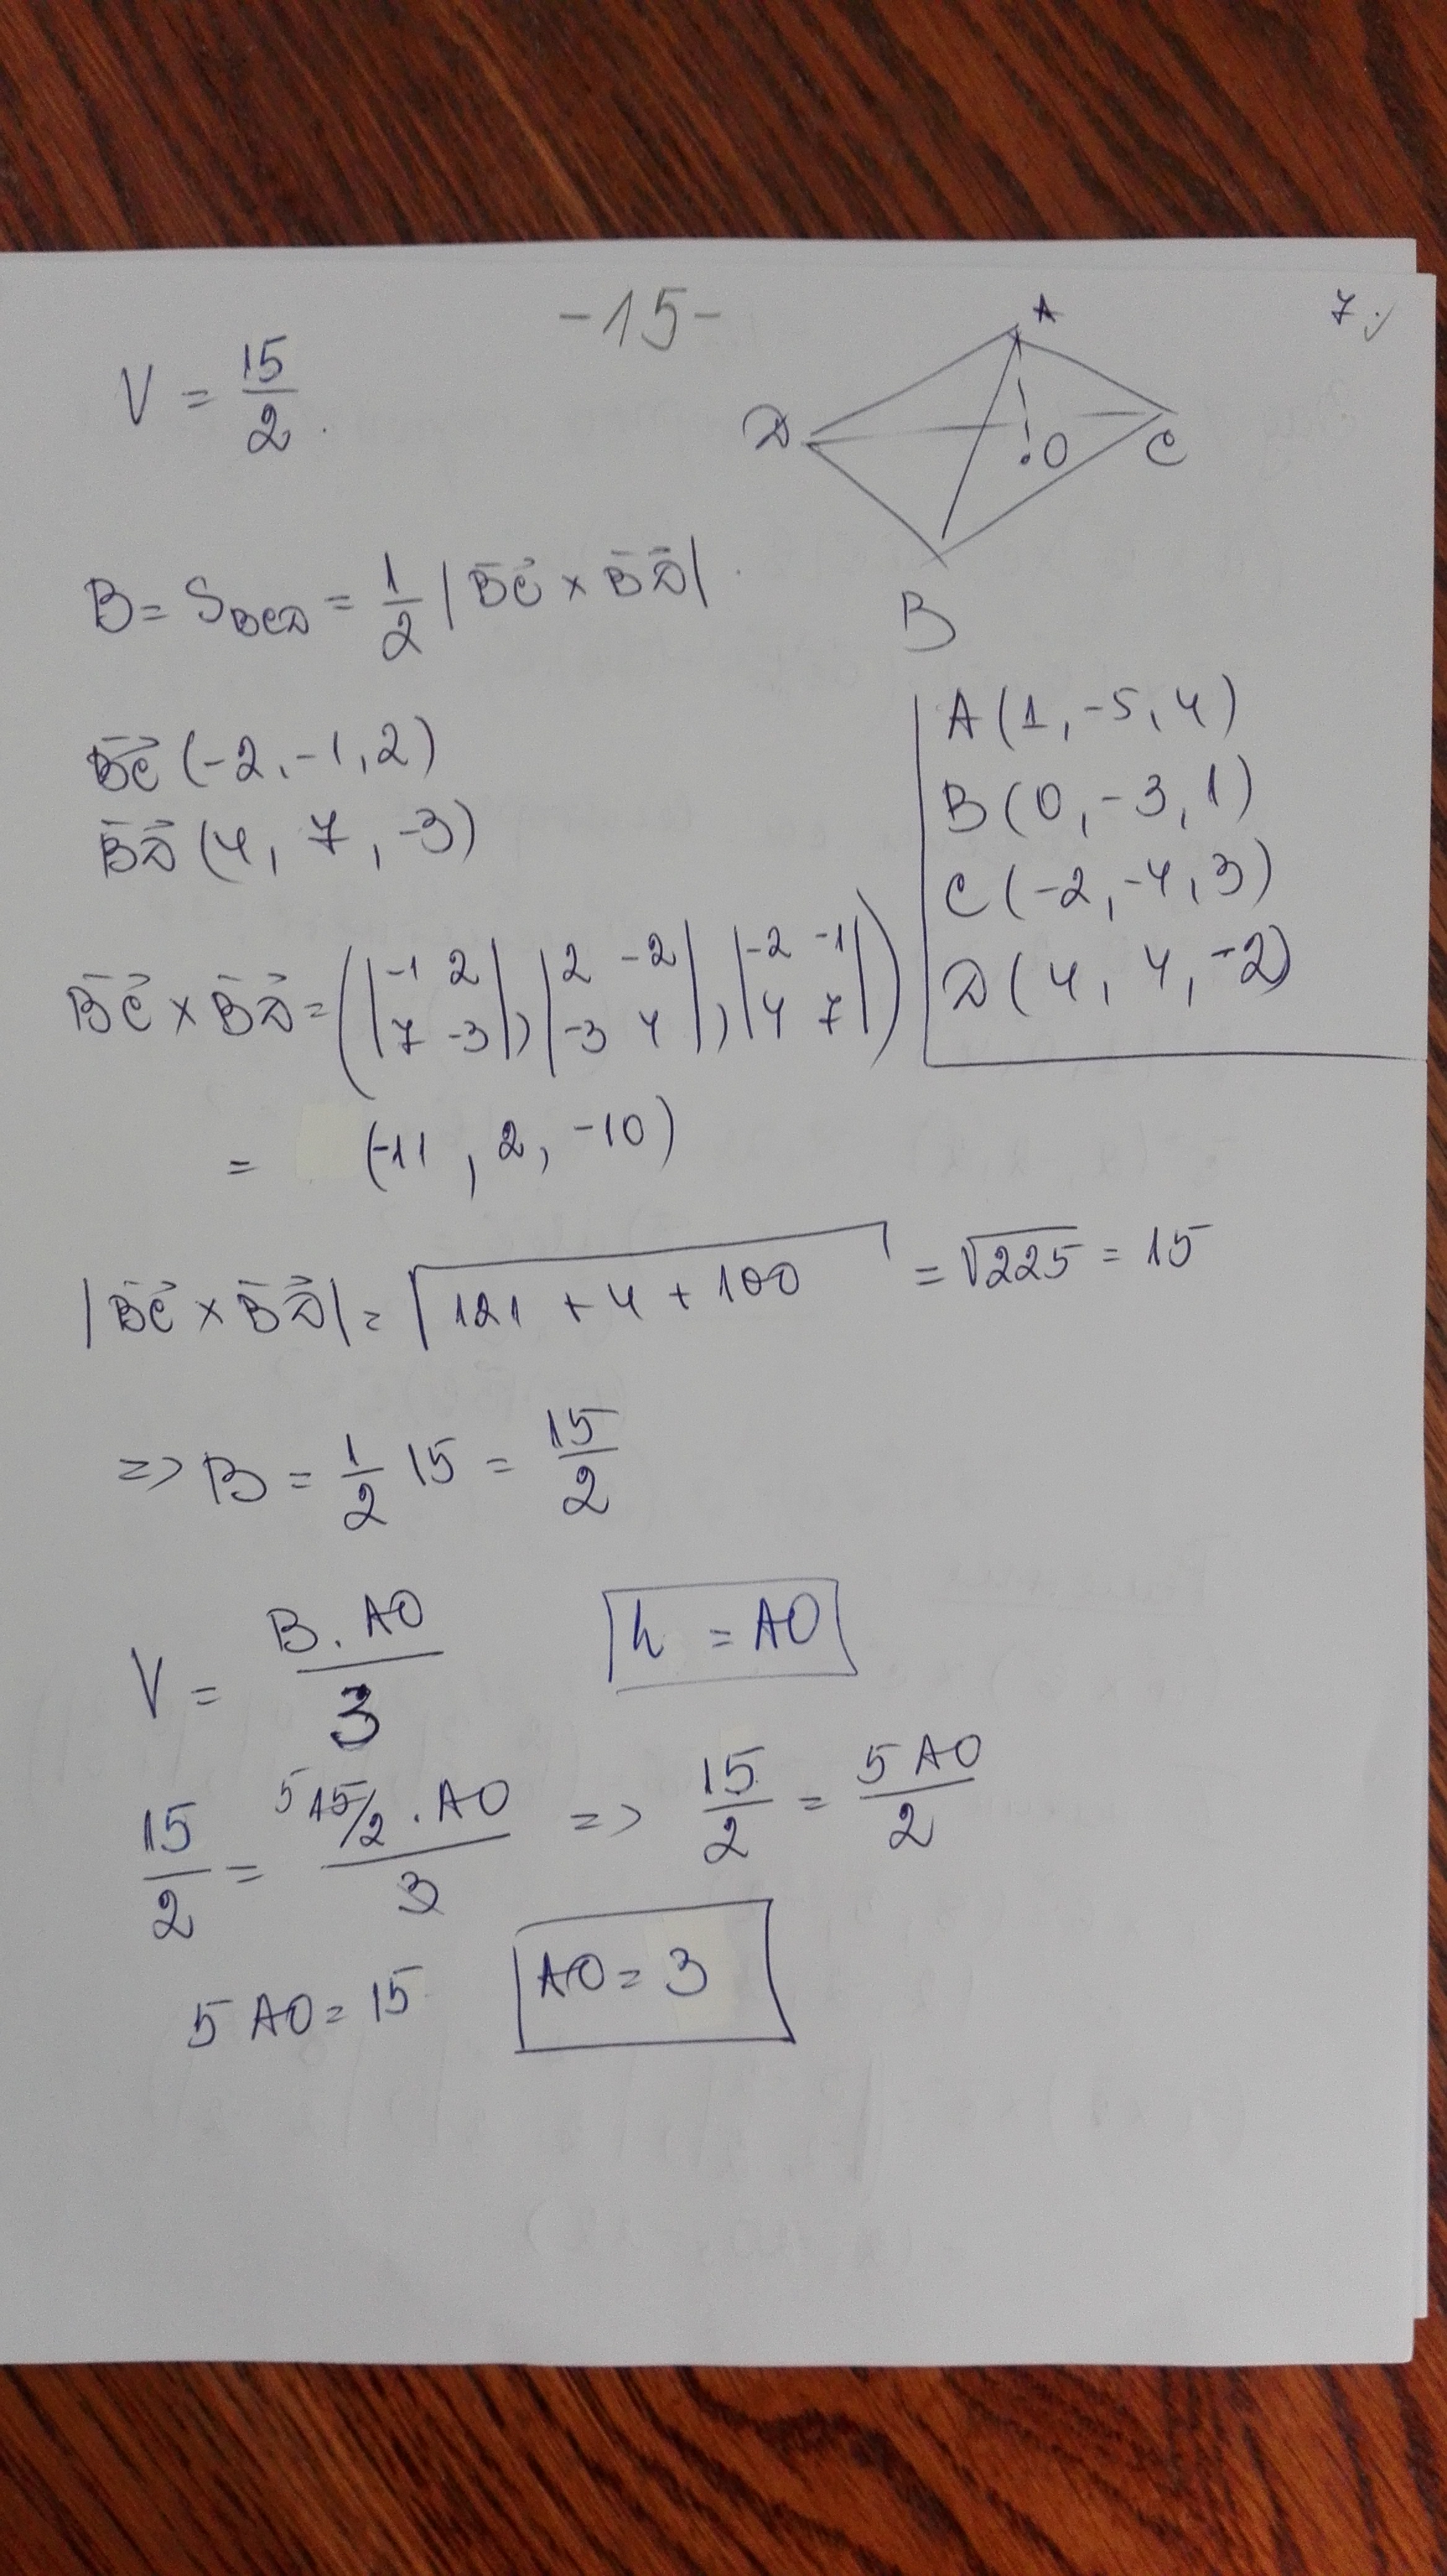 -15-
7.
V = 15/2.
A
D
O
C
B
B = S_BCD = 1/2 |BC⃗ × BD⃗|.
A (1, -5, 4)
B (0, -3, 1)
C (-2, -4, 3)
D (4, 4, -2)
BC⃗ (-2, -1, 2)
BD⃗ (4, 7, -3)
BC⃗ × BD⃗ = (|-1 2; 7 -3|, |2 -2; -3 4|, |-2 -1; 4 7|)
= (-11, 2, -10)
|BC⃗ × BD⃗| = √(121 + 4 + 100) = √225 = 15
=> B = 1/2 15 = 15/2
V = B . AO / 3
h = AO
15/2 = 5 15/2 . AO / 3 => 15/2 = 5 AO / 2
5 AO = 15
AO = 3